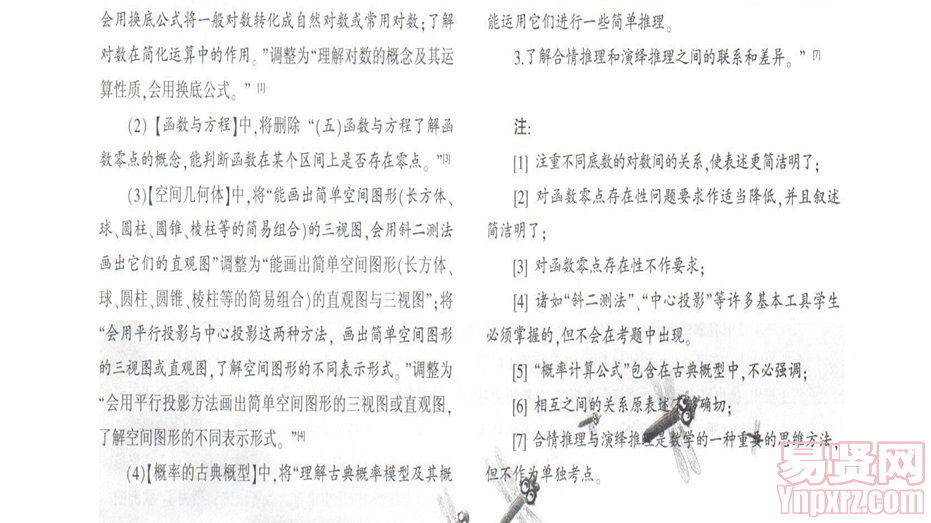 会用换底公式将一般对数转化成自然对数或常用对数；了解
对数在简化运算中的作用。”调整为“理解对数的概念及其运
算性质，会用换底公式。” [1]
(2)【函数与方程】中，将删除 “(五)函数与方程了解函
数零点的概念，能判断函数在某个区间上是否存在零点。”[3]
(3)【空间几何体】中，将“能画出简单空间图形(长方体、
球、圆柱、圆锥、棱柱等的简易组合)的三视图，会用斜二测法
画出它们的直观图”调整为“能画出简单空间图形(长方体、
球、圆柱、圆锥、棱柱等的简易组合)的直观图与三视图”；将
“会用平行投影与中心投影这两种方法，画出简单空间图形
的三视图或直观图，了解空间图形的不同表示形式。”调整为
“会用平行投影方法画出简单空间图形的三视图或直观图，
了解空间图形的不同表示形式。”[4]
(4)【概率的古典概型】中，将“理解古典概率模型及其概
能运用它们进行一些简单推理。
3.了解合情推理和演绎推理之间的联系和差异。” [7]
注：
[1] 注重不同底数的对数间的关系，使表述更简洁明了；
[2] 对函数零点存在性问题要求作适当降低，并且叙述
简洁明了；
[3] 对函数零点存在性不作要求；
[4] 诸如“斜二测法”、“中心投影”等许多基本工具学生
必须掌握的，但不会在考题中出现。
[5] “概率计算公式”包含在古典概型中，不必强调；
[6] 相互之间的关系原表述不够确切；
[7] 合情推理与演绎推理是数学的一种重要的思维方法，
但不作为单独考点。
易贤网
Ynpxrz.com